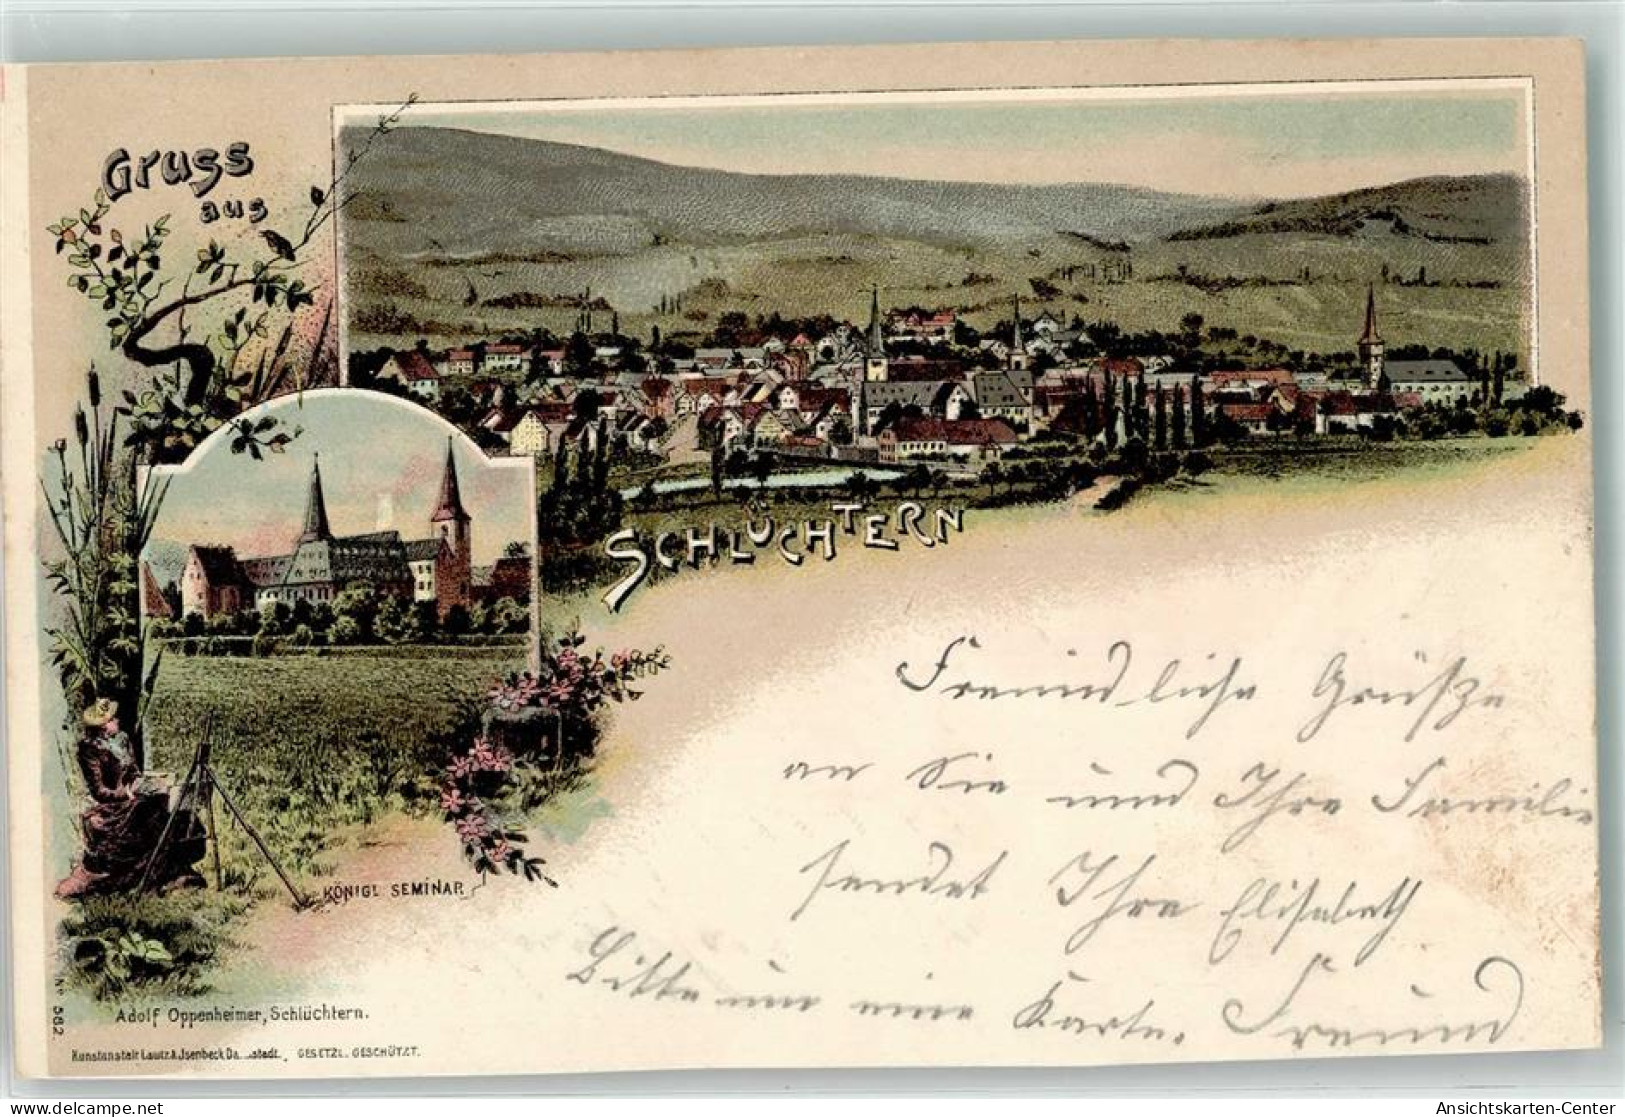 Gruss
aus
SCHLÜCHTERN
KÖNIGL SEMINAR
Freundliche Grüße
an Sie und Ihre Familie
sendet Ihre Elisabeth
Freund
Bitte um eine Karte.
Nº 582.
Adolf Oppenheimer, Schlüchtern.
Kunstanstalt Lautz & Jsenbeck Da...stadt. GESETZL. GESCHÜTZT.
www.delcampe.net
Ansichtskarten-Center